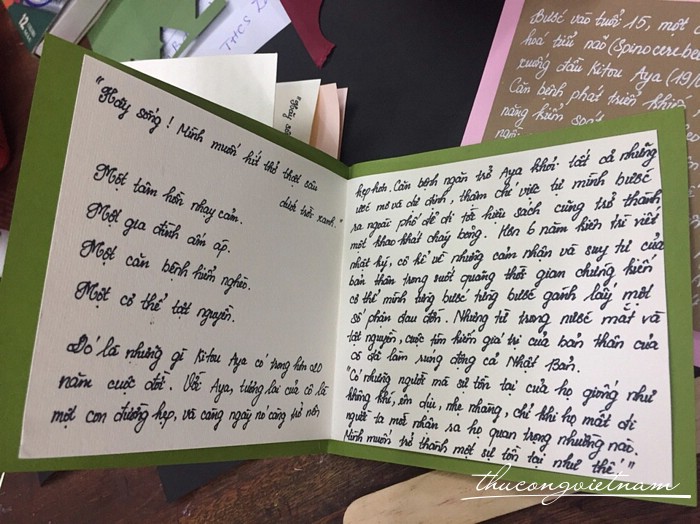 "Hãy sống! Mình muốn hít thở thật sâu
dưới trời xanh."
Một tâm hồn nhạy cảm.
Một gia đình ấm áp.
Một căn bệnh hiểm nghèo.
Một cơ thể tật nguyền.
Đó là những gì Kitou Aya có trong hơn 20
năm cuộc đời. Với Aya, tương lai của cô là
một con đường hẹp, và càng ngày nó càng trở nên
hẹp hơn. Căn bệnh ngăn trở Aya khỏi tất cả những
ước mơ và dự định, thậm chí việc tự mình bước
ra ngoài phố để đi tới hiệu sách cũng trở thành
một khao khát cháy bỏng. Hơn 6 năm kiên trì viết
nhật ký, cô kể về những cảm nhận và suy tư của
bản thân trong suốt quãng thời gian chứng kiến
cơ thể mình từng bước từng bước gánh lấy một
số phận đau đớn. Nhưng từ trong nước mắt và
tật nguyền, cuộc tìm kiếm giá trị của bản thân của
cô đã làm rung động cả Nhật Bản.
"Có những người mà sự tồn tại của họ giống như
không khí, êm dịu, nhẹ nhàng, chỉ khi họ mất đi
người ta mới nhận ra họ quan trọng nhường nào.
Mình muốn trở thành một sự tồn tại như thế!"
Bước vào tuổi 15, một
hoá tiểu não (Spinocerebe
xương đầu Kitou Aya (19/
Căn bệnh phát triển khiến
năng kiểm soát
12
THCS
"Hãy số
thucongvietnam